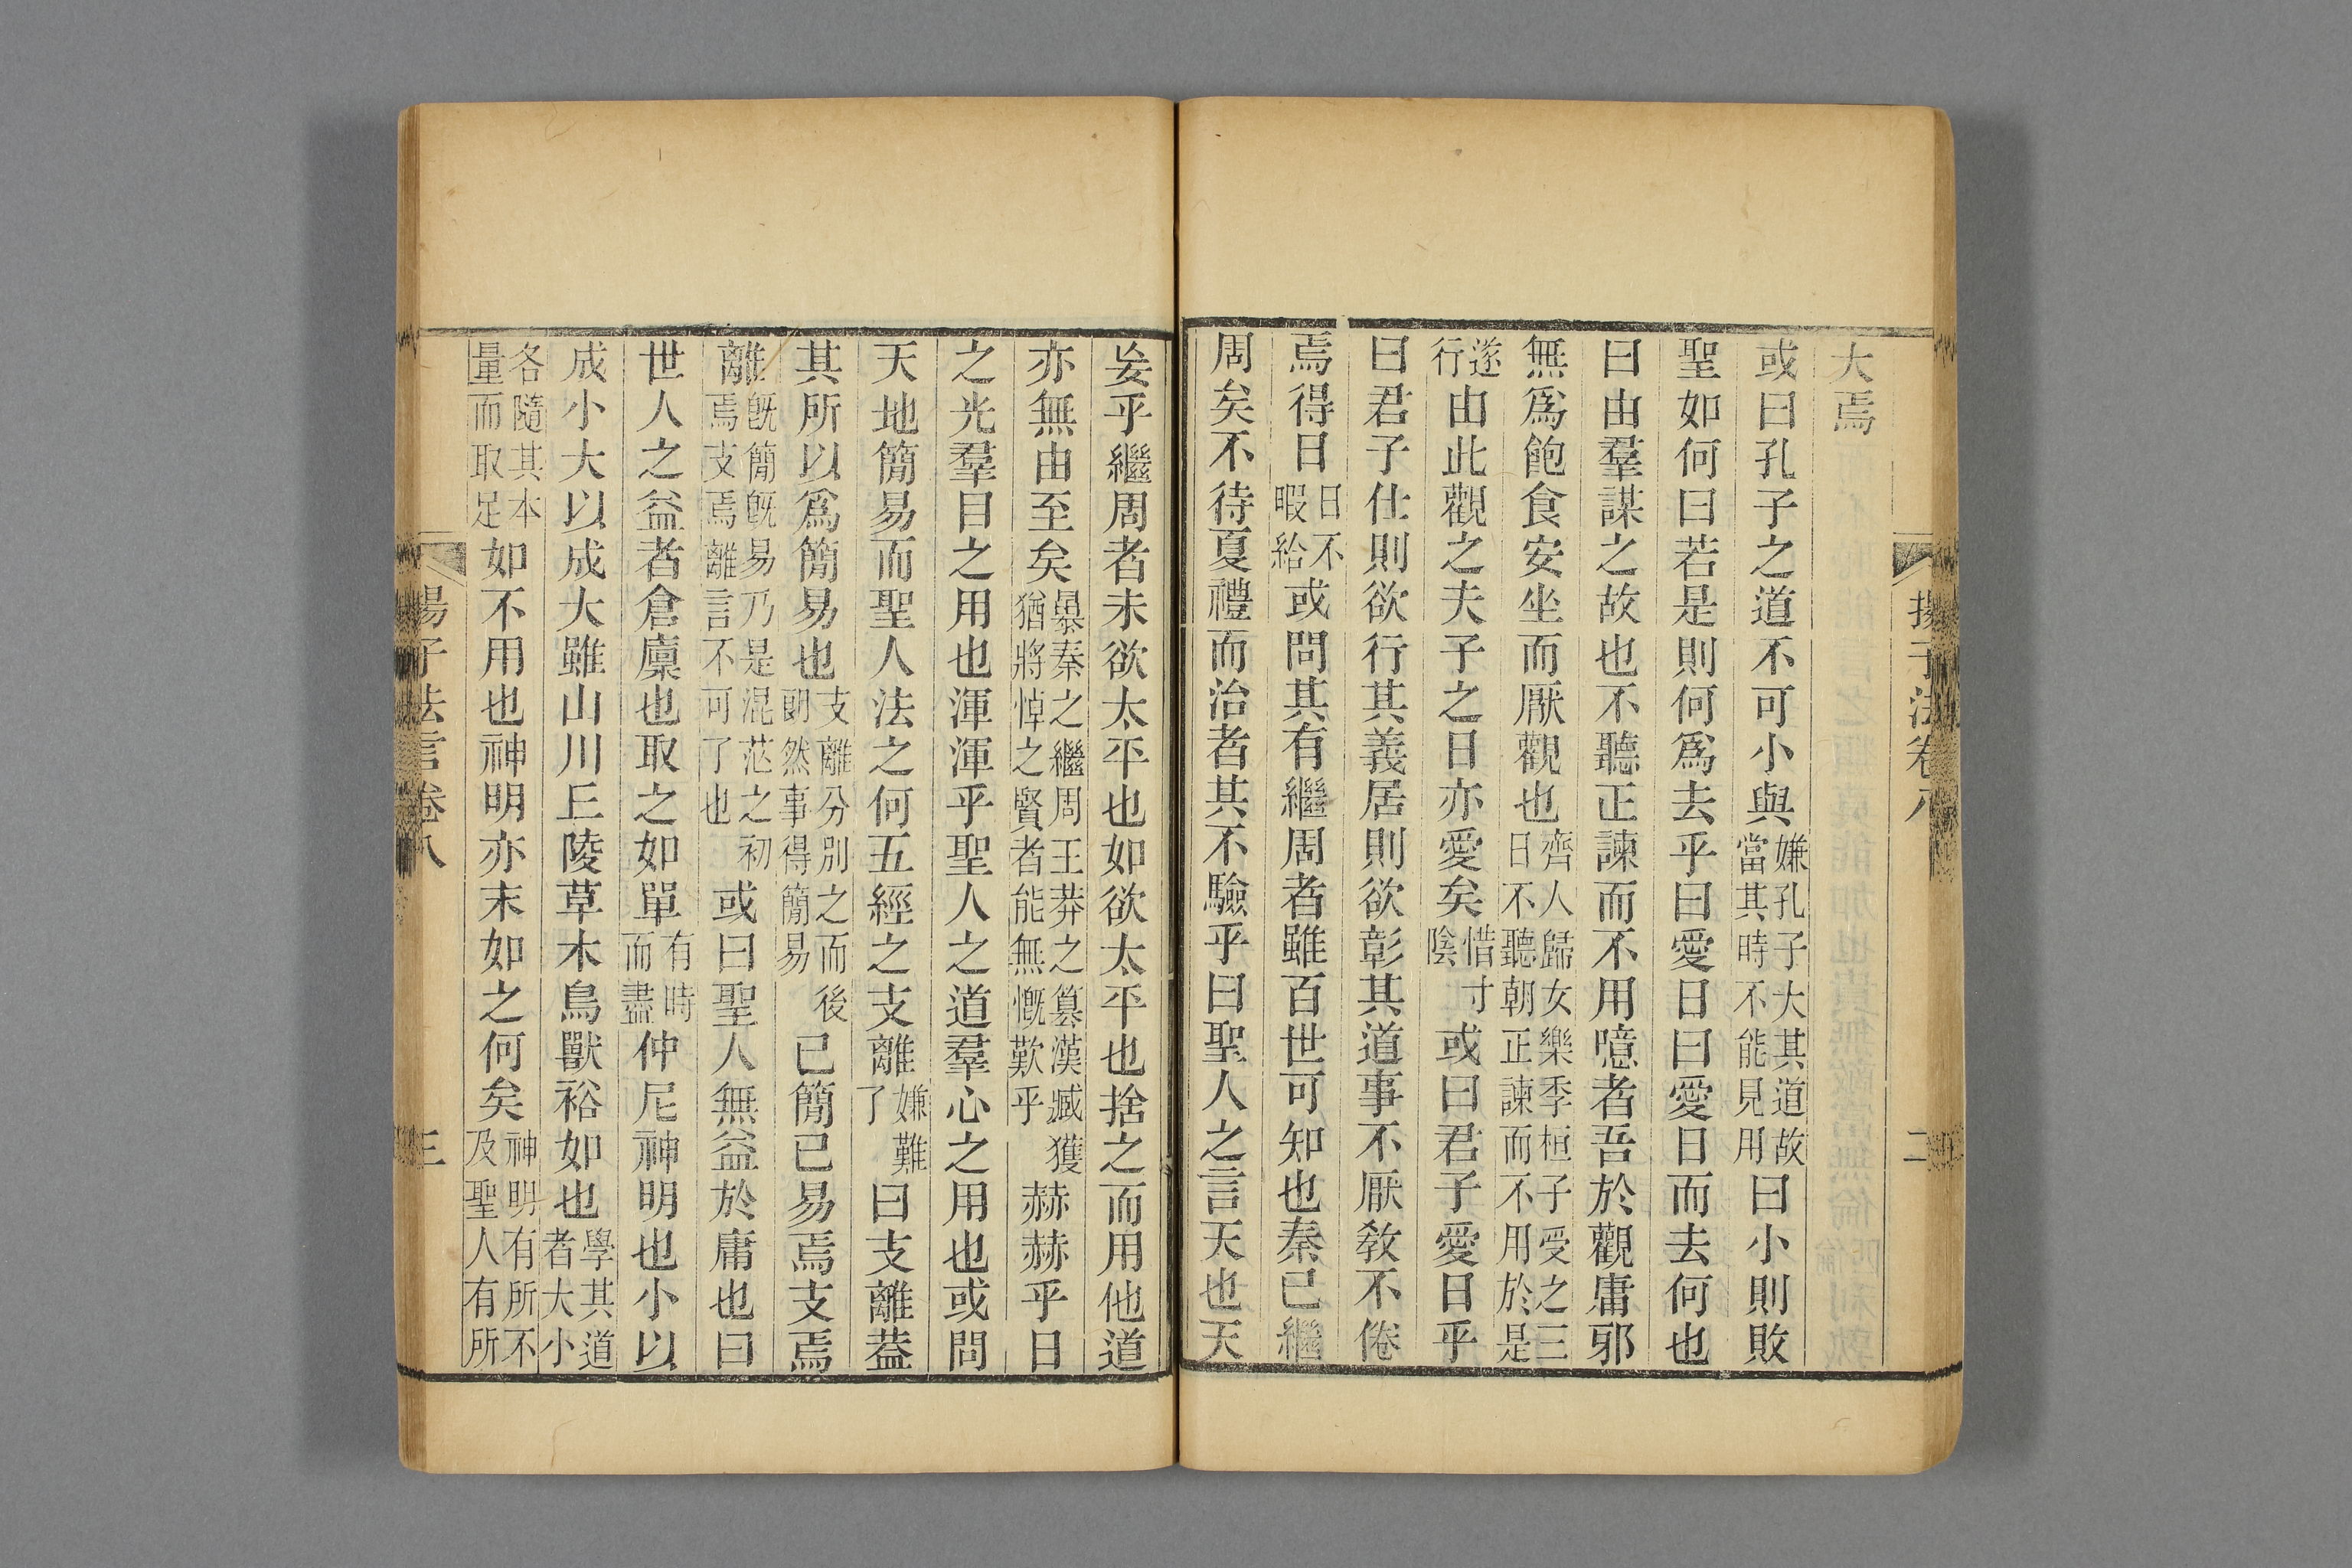 大焉
或曰孔子之道不可小與嫌孔子大其道故當其時不能見用曰小則敗
聖如何曰若是則何爲去乎曰愛日曰愛日而去何也
曰由羣謀之故也不聽正諫而不用噫者吾於觀庸邪
無爲飽食安坐而厭觀也齊人歸女樂季桓子受之三日不聽朝正諫而不用於是
遂行由此觀之夫子之日亦愛矣惜寸陰或曰君子愛日乎
曰君子仕則欲行其義居則欲彰其道事不厭敎不倦
焉得日日不暇給或問其有繼周者雖百世可知也秦已繼
周矣不待夏禮而治者其不驗乎曰聖人之言天也天
妄乎繼周者未欲太平也如欲太平也捨之而用他道
亦無由至矣暴秦之繼周王莽之篡漢臧獲猶將悼之賢者能無慨歎乎赫赫乎日
之光羣目之用也渾渾乎聖人之道羣心之用也或問
天地簡易而聖人法之何五經之支離嫌難了曰支離葢
其所以爲簡易也支離分別之而後朗然事得簡易已簡已易焉支焉
離離旣簡旣易乃是混茫之初焉支焉離言不可了也或曰聖人無益於庸也曰
世人之益者倉廩也取之如單有時而盡仲尼神明也小以
成小大以成大雖山川丘陵草木鳥獸裕如也學其道者大小
各隨其本量而取足如不用也神明亦末如之何矣神明有所不及聖人有所
揚子法卷八
二
揚子法言卷八
三